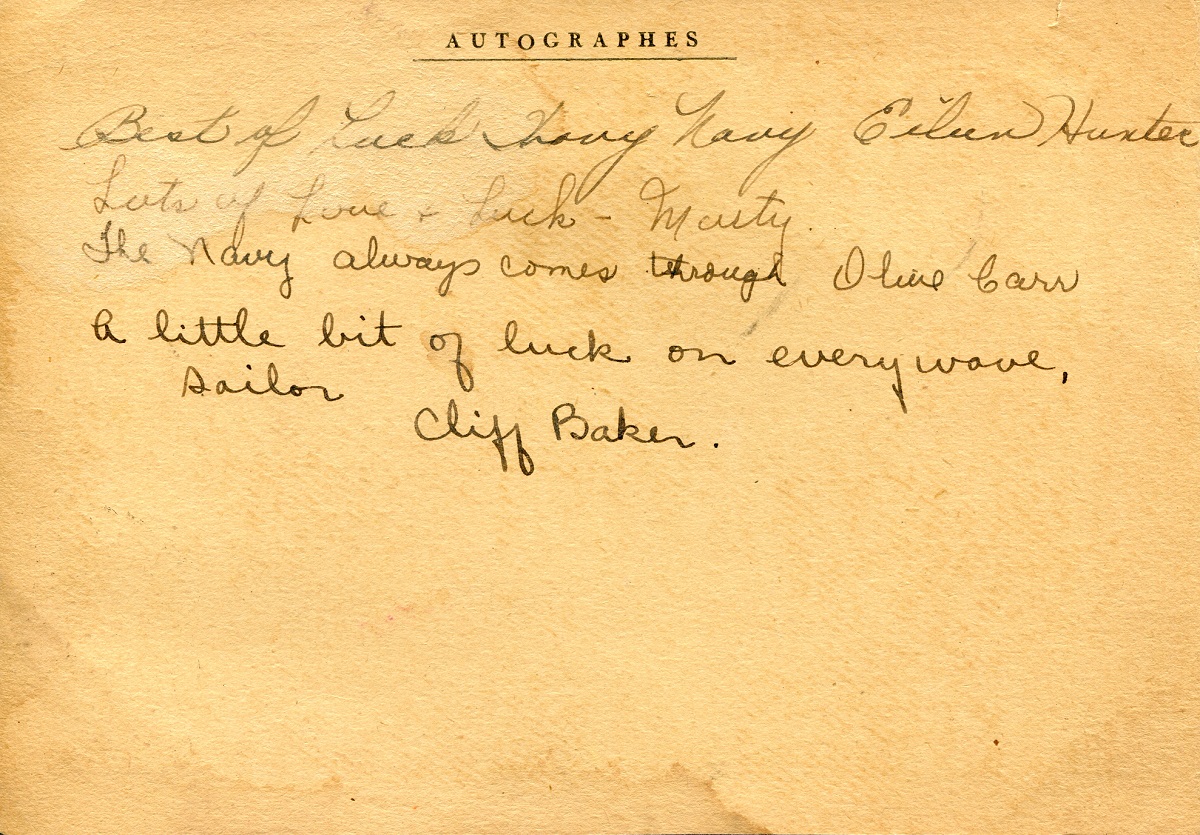 AUTOGRAPHES
Best of Luck Navy Eileen Hunter
Lots of Love & Luck - Marty.
The Navy always comes through Olive Carr
A little bit of luck on every wave,
sailor
Cliff Baker.